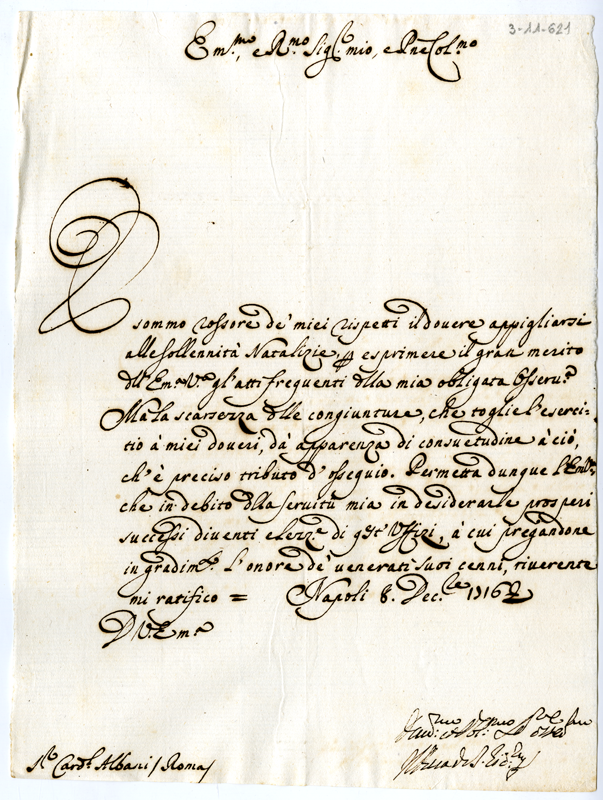 3-11-621
Em.mo, e R.mo Sig.r mio, e Pne Col.mo
È sommo rossore de' miei rispetti il dovere appigliarsi
alle sollennità Natalizie, p esprimere il gran merito
dll' Em.a V.a gl'atti frequenti dlla mia obligata Osseru.a
Ma la scarsezza dlle congiunture, che toglie l'eserci-
tio à miei doueri, dà apparenza di consuetudine à ciò,
ch'è preciso tributo d'ossequio. Permetta dunque l'Em.V.
che in debito dlla seruitù mia in desiderarle prosperi
successi diuenti elezz.e di qst' Uffizi, à cui pregandone
in gradim.to l'onore de' venerati suoi cenni, riuerente
mi ratifico = Napoli 8. Dec.bre 1716
D V. Em.a
S.r Card.l Albani / Roma /